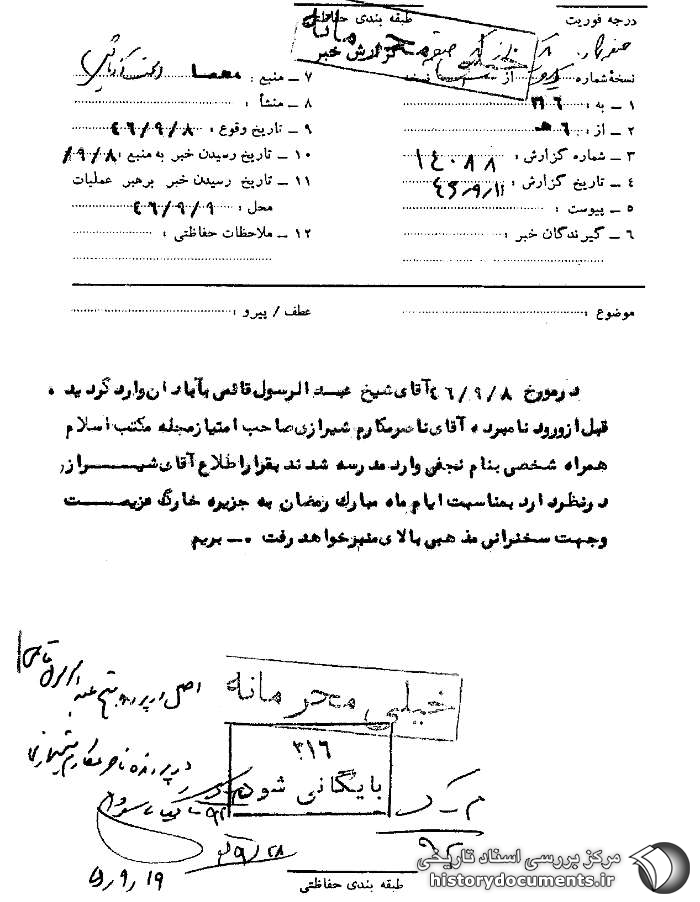 درجه فوریت
طبقه بندی حفاظتی
خیلی محرمانه
گزارش خبر
نسخهٔ شماره از نسخه
۱ ـ به : ۳۱۶
۲ ـ از : ۶ ﻫ
۳ ـ شماره گزارش : ۱۴۰۸۸
۴ ـ تاریخ گزارش : ۴۶/۹/۱۱
۵ ـ پیوست :
۶ ـ گیرندگان خبر :
۷ ـ منبع :
۸ ـ منشأ :
۹ ـ تاریخ وقوع : ۴۶/۹/۸
۱۰ ـ تاریخ رسیدن خبر به منبع : ۹/۸/
۱۱ ـ تاریخ رسیدن خبر برهبر عملیات
محل : ۴۶/۹/۹
۱۲ ـ ملاحظات حفاظتی :
موضوع :
عطف / پیرو :
در مورخ ۴۶/۹/۸ آقای شیخ عبدالرسول قائمی بآبادان وارد گردید .
قبل از ورود نامبرده آقای ناصر مکارم شیرازی صاحب امتیاز مجله مکتب اسلام
همراه شخصی بنام نجفی وارد مدرسه شدند بقرار اطلاع آقای شیرازی
در نظر دارد بمناسبت ایام ماه مبارک رمضان به جزیره خارک عزیمت
وجهت سخنرانی مذهبی بالای منبر خواهد رفت .ـ بریم
خیلی محرمانه
اصل در پرونده شیخ عبدالرسول قائمی
در پرونده ناصر مکارم شیرازی
۳۱۶
بایگانی شود
۹/۲۸
۹/۱۹
طبقه بندی حفاظتی
مرکز بررسی اسناد تاریخی
historydocuments.ir